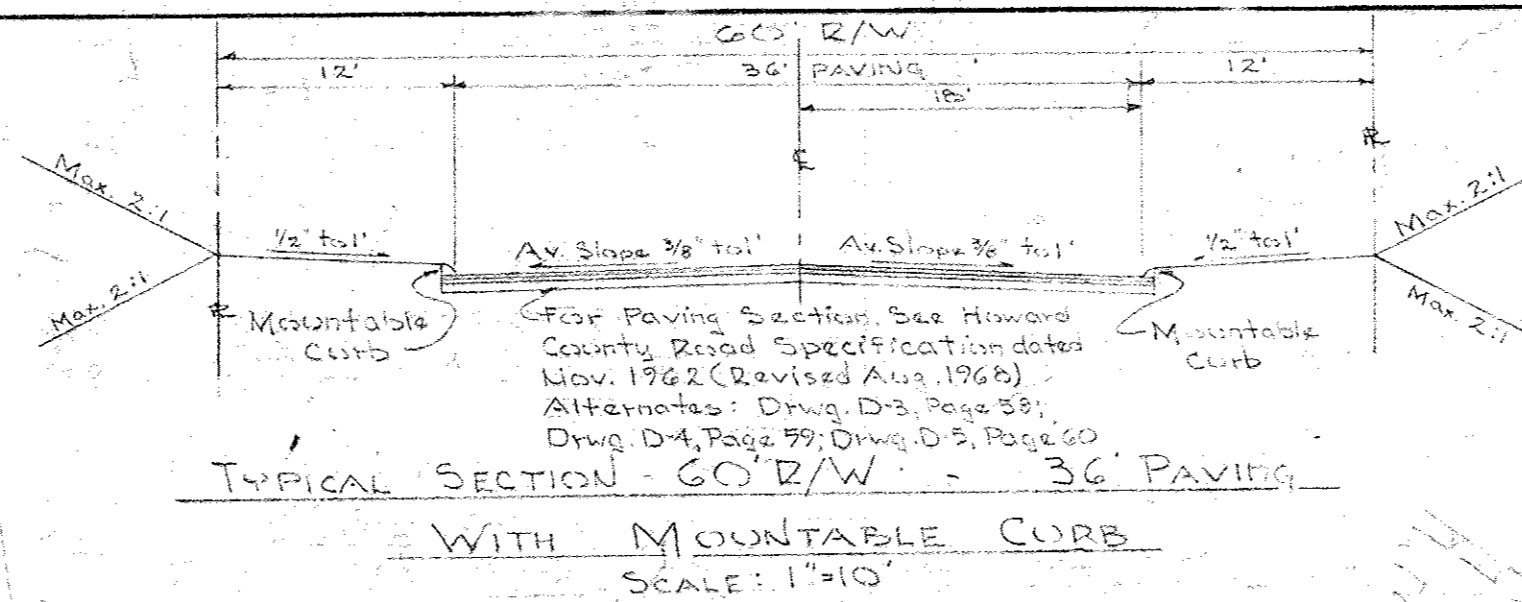 60' R/W
12'
36' PAVING
12'
18'
℄
Max. 2:1
Max. 2:1
1/2" to 1'
Av. Slope 3/8" to 1'
Av. Slope 3/8" to 1'
1/2" to 1'
Max. 2:1
Max. 2:1
Mountable
Curb
For Paving Section, See Howard
County Road Specification dated
Nov. 1962 (Revised Aug. 1968)
Alternates: Drwg. D-3, Page 58;
Drwg. D-4, Page 59; Drwg. D-5, Page 60
Mountable
Curb
TYPICAL SECTION - 60' R/W - 36' PAVING
WITH MOUNTABLE CURB
SCALE: 1"=10'